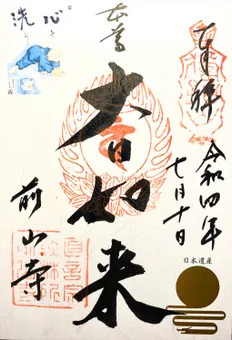 奉拝
令和四年
七月十日
日本遺産
本尊
大日如来
前山寺
心を
洗う